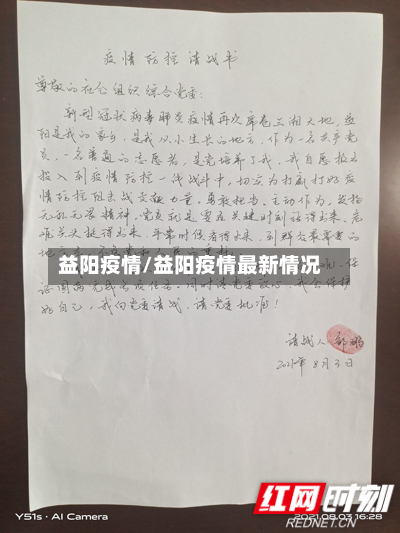 疫情防控请战书
尊敬的社会组织综合党委:
新型冠状病毒肺炎疫情再次席卷三湘大地，益
阳是我的家乡，是我从小生长的地方，作为一名共产党
员，一名普通的志愿者，是党培养了我，我自愿报名
投入到疫情防控一线战斗中，切实为打赢打好疫
情防控阻击战贡献力量，勇敢担当，主动作为，发扬
无私无畏精神，党员就是要在关键时刻站得出来，危
难关头挺得出来，平常时候看得出来，到群众最需要的
地
益阳疫情/益阳疫情最新情况
保
证
好自己，我向党委请战，请党委批准！
请战人
2021年8月3日
Y51s·AI Camera
2021.08.03 16:28
红网时刻
REDNET.CN